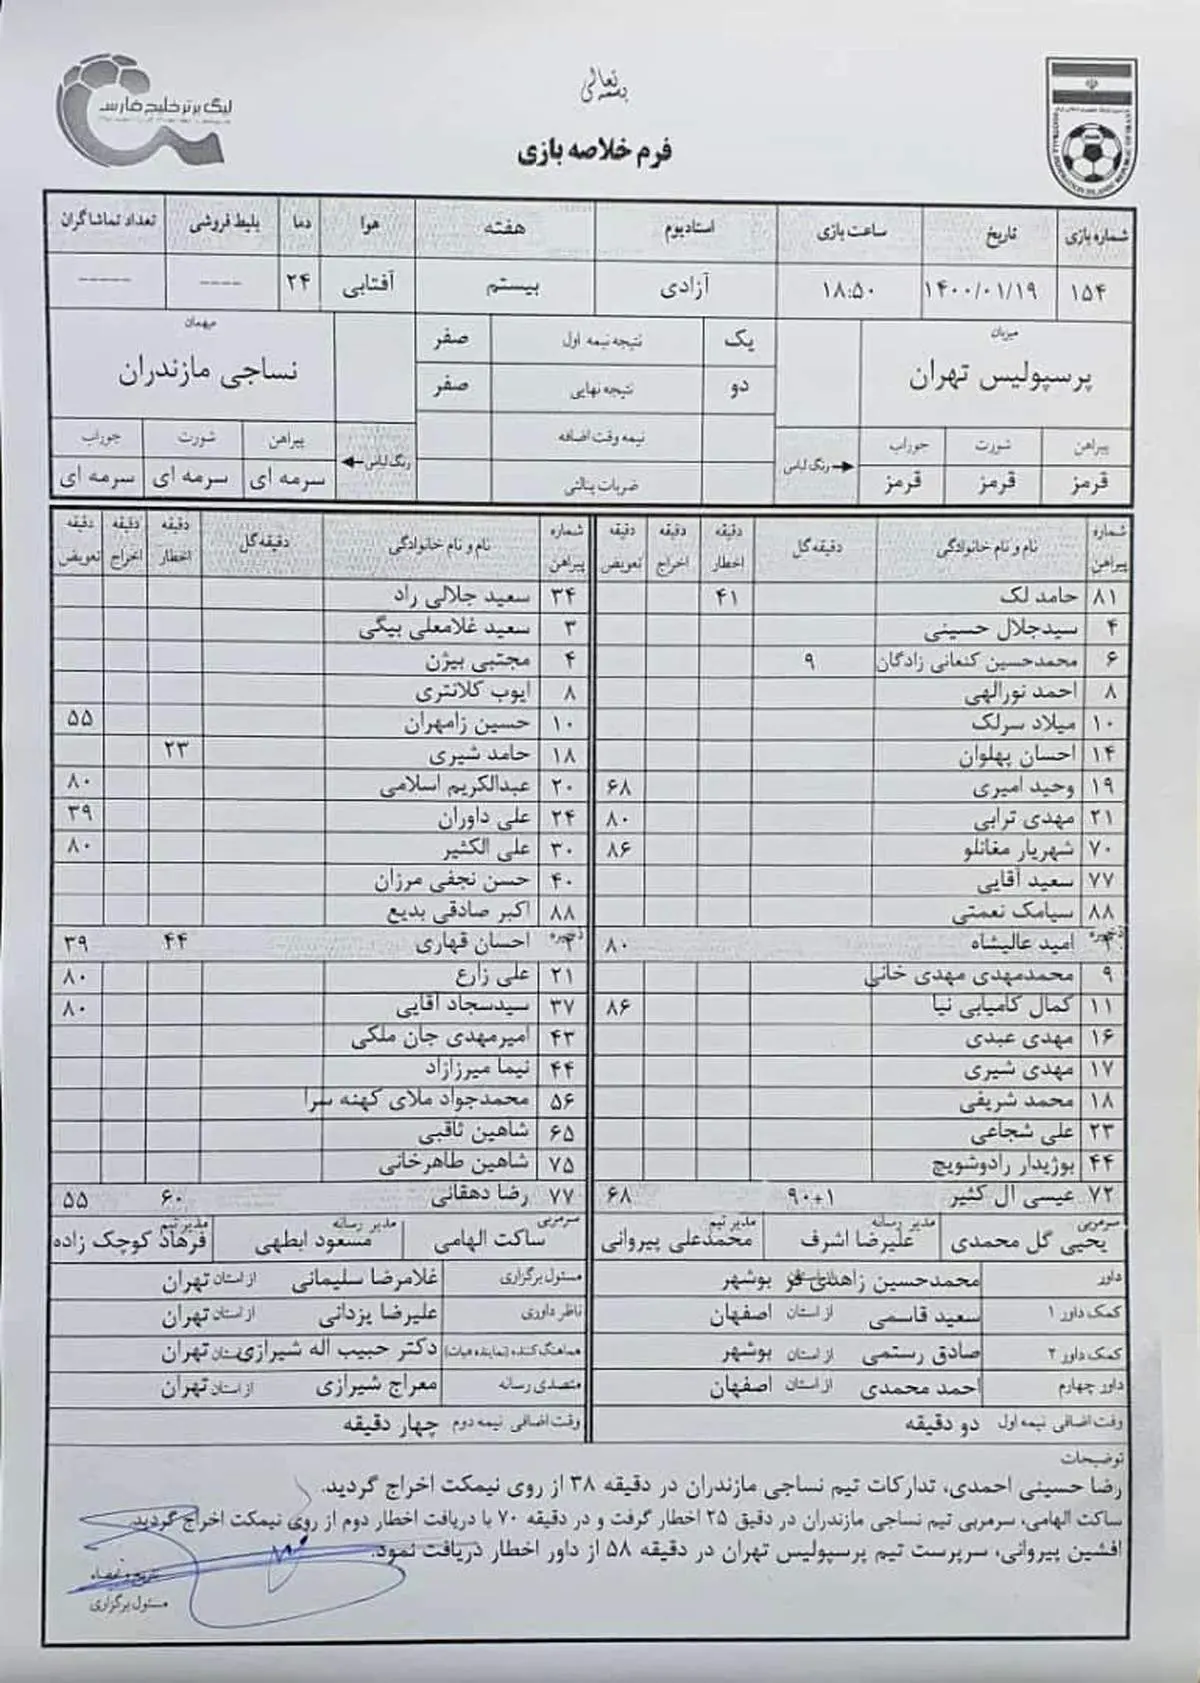 بسمه تعالی
لیگ برتر خلیج فارس
فرم خلاصه بازی
شماره بازی تاریخ ساعت بازی استادیوم هفته هوا دما بلیط فروشی تعداد تماشاگران
۱۵۴ ۱۴۰۰/۰۱/۱۹ ۱۸:۵۰ آزادی بیستم آفتابی ۲۴ ---- -----
میزبان یک نتیجه نیمه اول صفر میهمان
پرسپولیس تهران دو نتیجه نهایی صفر نساجی مازندران
نیمه وقت اضافه
پیراهن شورت جوراب رنگ لباس ضربات پنالتی رنگ لباس پیراهن شورت جوراب
قرمز قرمز قرمز سرمه ای سرمه ای سرمه ای
شماره پیراهن نام و نام خانوادگی دقیقه گل دقیقه اخطار دقیقه اخراج دقیقه تعویض شماره پیراهن نام و نام خانوادگی دقیقه گل دقیقه اخطار دقیقه اخراج دقیقه تعویض
۸۱ حامد لک ۴۱ ۳۴ سعید جلالی راد
۴ سیدجلال حسینی ۳ سعید غلامعلی بیگی
۶ محمدحسین کنعانی زادگان ۹ ۴ مجتبی بیژن
۸ احمد نورالهی ۸ ایوب کلانتری
۱۰ میلاد سرلک ۱۰ حسین زامهران ۵۵
۱۴ احسان پهلوان ۱۸ حامد شیری ۲۳
۱۹ وحید امیری ۶۸ ۲۰ عبدالکریم اسلامی ۸۰
۲۱ مهدی ترابی ۸۰ ۲۴ علی داوران ۳۹
۷۰ شهریار مغانلو ۸۶ ۳۰ علی الکثیر ۸۰
۷۷ سعید آقایی ۴۰ حسن نجفی مرزان
۸۸ سیامک نعمتی ۸۸ اکبر صادقی بدیع
ذخیره امید عالیشاه ۸۰ ذخیره ۲ احسان قهاری ۴۴ ۳۹
۹ محمدمهدی مهدی خانی ۲۱ علی زارع ۸۰
۱۱ کمال کامیابی نیا ۸۶ ۳۷ سیدسجاد آقایی ۸۰
۱۶ مهدی عبدی ۴۳ امیرمهدی جان ملکی
۱۷ مهدی شیری ۴۴ نیما میرزازاد
۱۸ محمد شریفی ۵۶ محمدجواد ملای کهنه سرا
۲۳ علی شجاعی ۶۵ شاهین ثاقبی
۴۴ بوژیدار رادوشویچ ۷۵ شاهین طاهرخانی
۷۲ عیسی ال کثیر ۹۰+۱ ۶۸ ۷۷ رضا دهقانی ۶۰ ۵۵
سرمربی یحیی گل محمدی مدیر رسانه علیرضا اشرف مدیر تیم محمدعلی پیروانی سرمربی ساکت الهامی مدیر رسانه مسعود ابطهی مدیر تیم فرهاد کوچک زاده
داور محمدحسین زاهدی فر از استان بوشهر مسئول برگزاری غلامرضا سلیمانی از استان تهران
کمک داور ۱ سعید قاسمی از استان اصفهان ناظر داوری علیرضا یزدانی از استان تهران
کمک داور ۲ صادق رستمی از استان بوشهر هماهنگ کننده (نماینده هیات) دکتر حبیب اله شیرازی از استان تهران
داور چهارم احمد محمدی از استان اصفهان متصدی رسانه معراج شیرازی از استان تهران
وقت اضافی نیمه اول دو دقیقه وقت اضافی نیمه دوم چهار دقیقه
توضیحات
رضا حسینی احمدی، تدارکات تیم نساجی مازندران در دقیقه ۳۸ از روی نیمکت اخراج گردید.
ساکت الهامی، سرمربی تیم نساجی مازندران در دقیق ۲۵ اخطار گرفت و در دقیقه ۷۰ با دریافت اخطار دوم از روی نیمکت اخراج گردید.
افشین پیروانی، سرپرست تیم پرسپولیس تهران در دقیقه ۵۸ از داور اخطار دریافت نمود.
تاریخ و امضاء
مسئول برگزاری